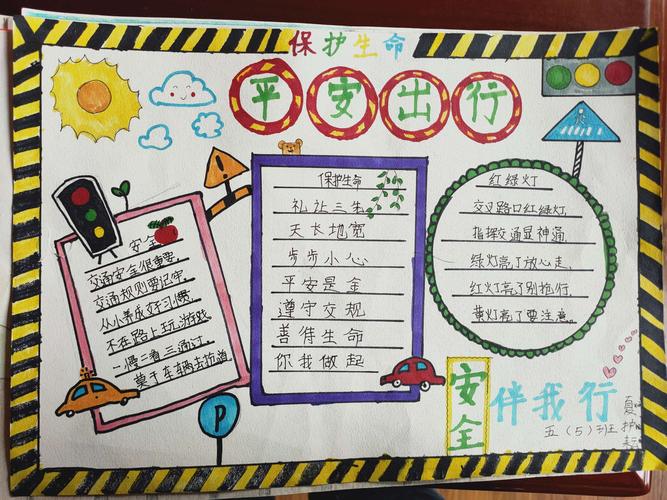 保护生命
平安出行
安全
交通安全很重要,
交通规则要记牢。
从小养成好习惯,
不在路上玩游戏,
一慢二看三通过,
莫于车辆去抢道
保护生命
礼让三先
天长地宽
步步小心
平安是金
遵守交规
善待生命
你我做起
红绿灯
交叉路口红绿灯,
指挥交通显神通,
绿灯亮了放心走,
红灯亮了别抢行,
黄灯亮了要注意。
P
安全
伴我行
五(5)班
夏